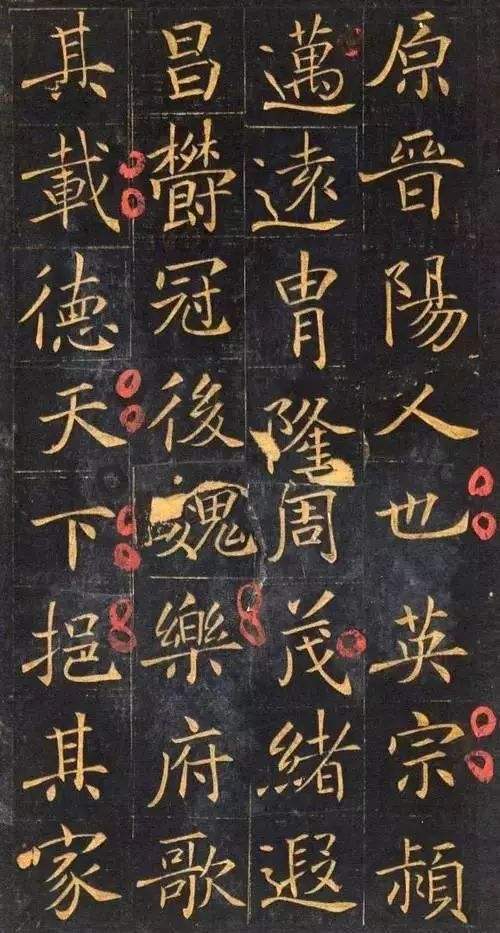 原晉陽人也英宗穎
邁遠冑隆周茂緒遐
昌鬱冠後魏樂府歌
其載德天下挹其家